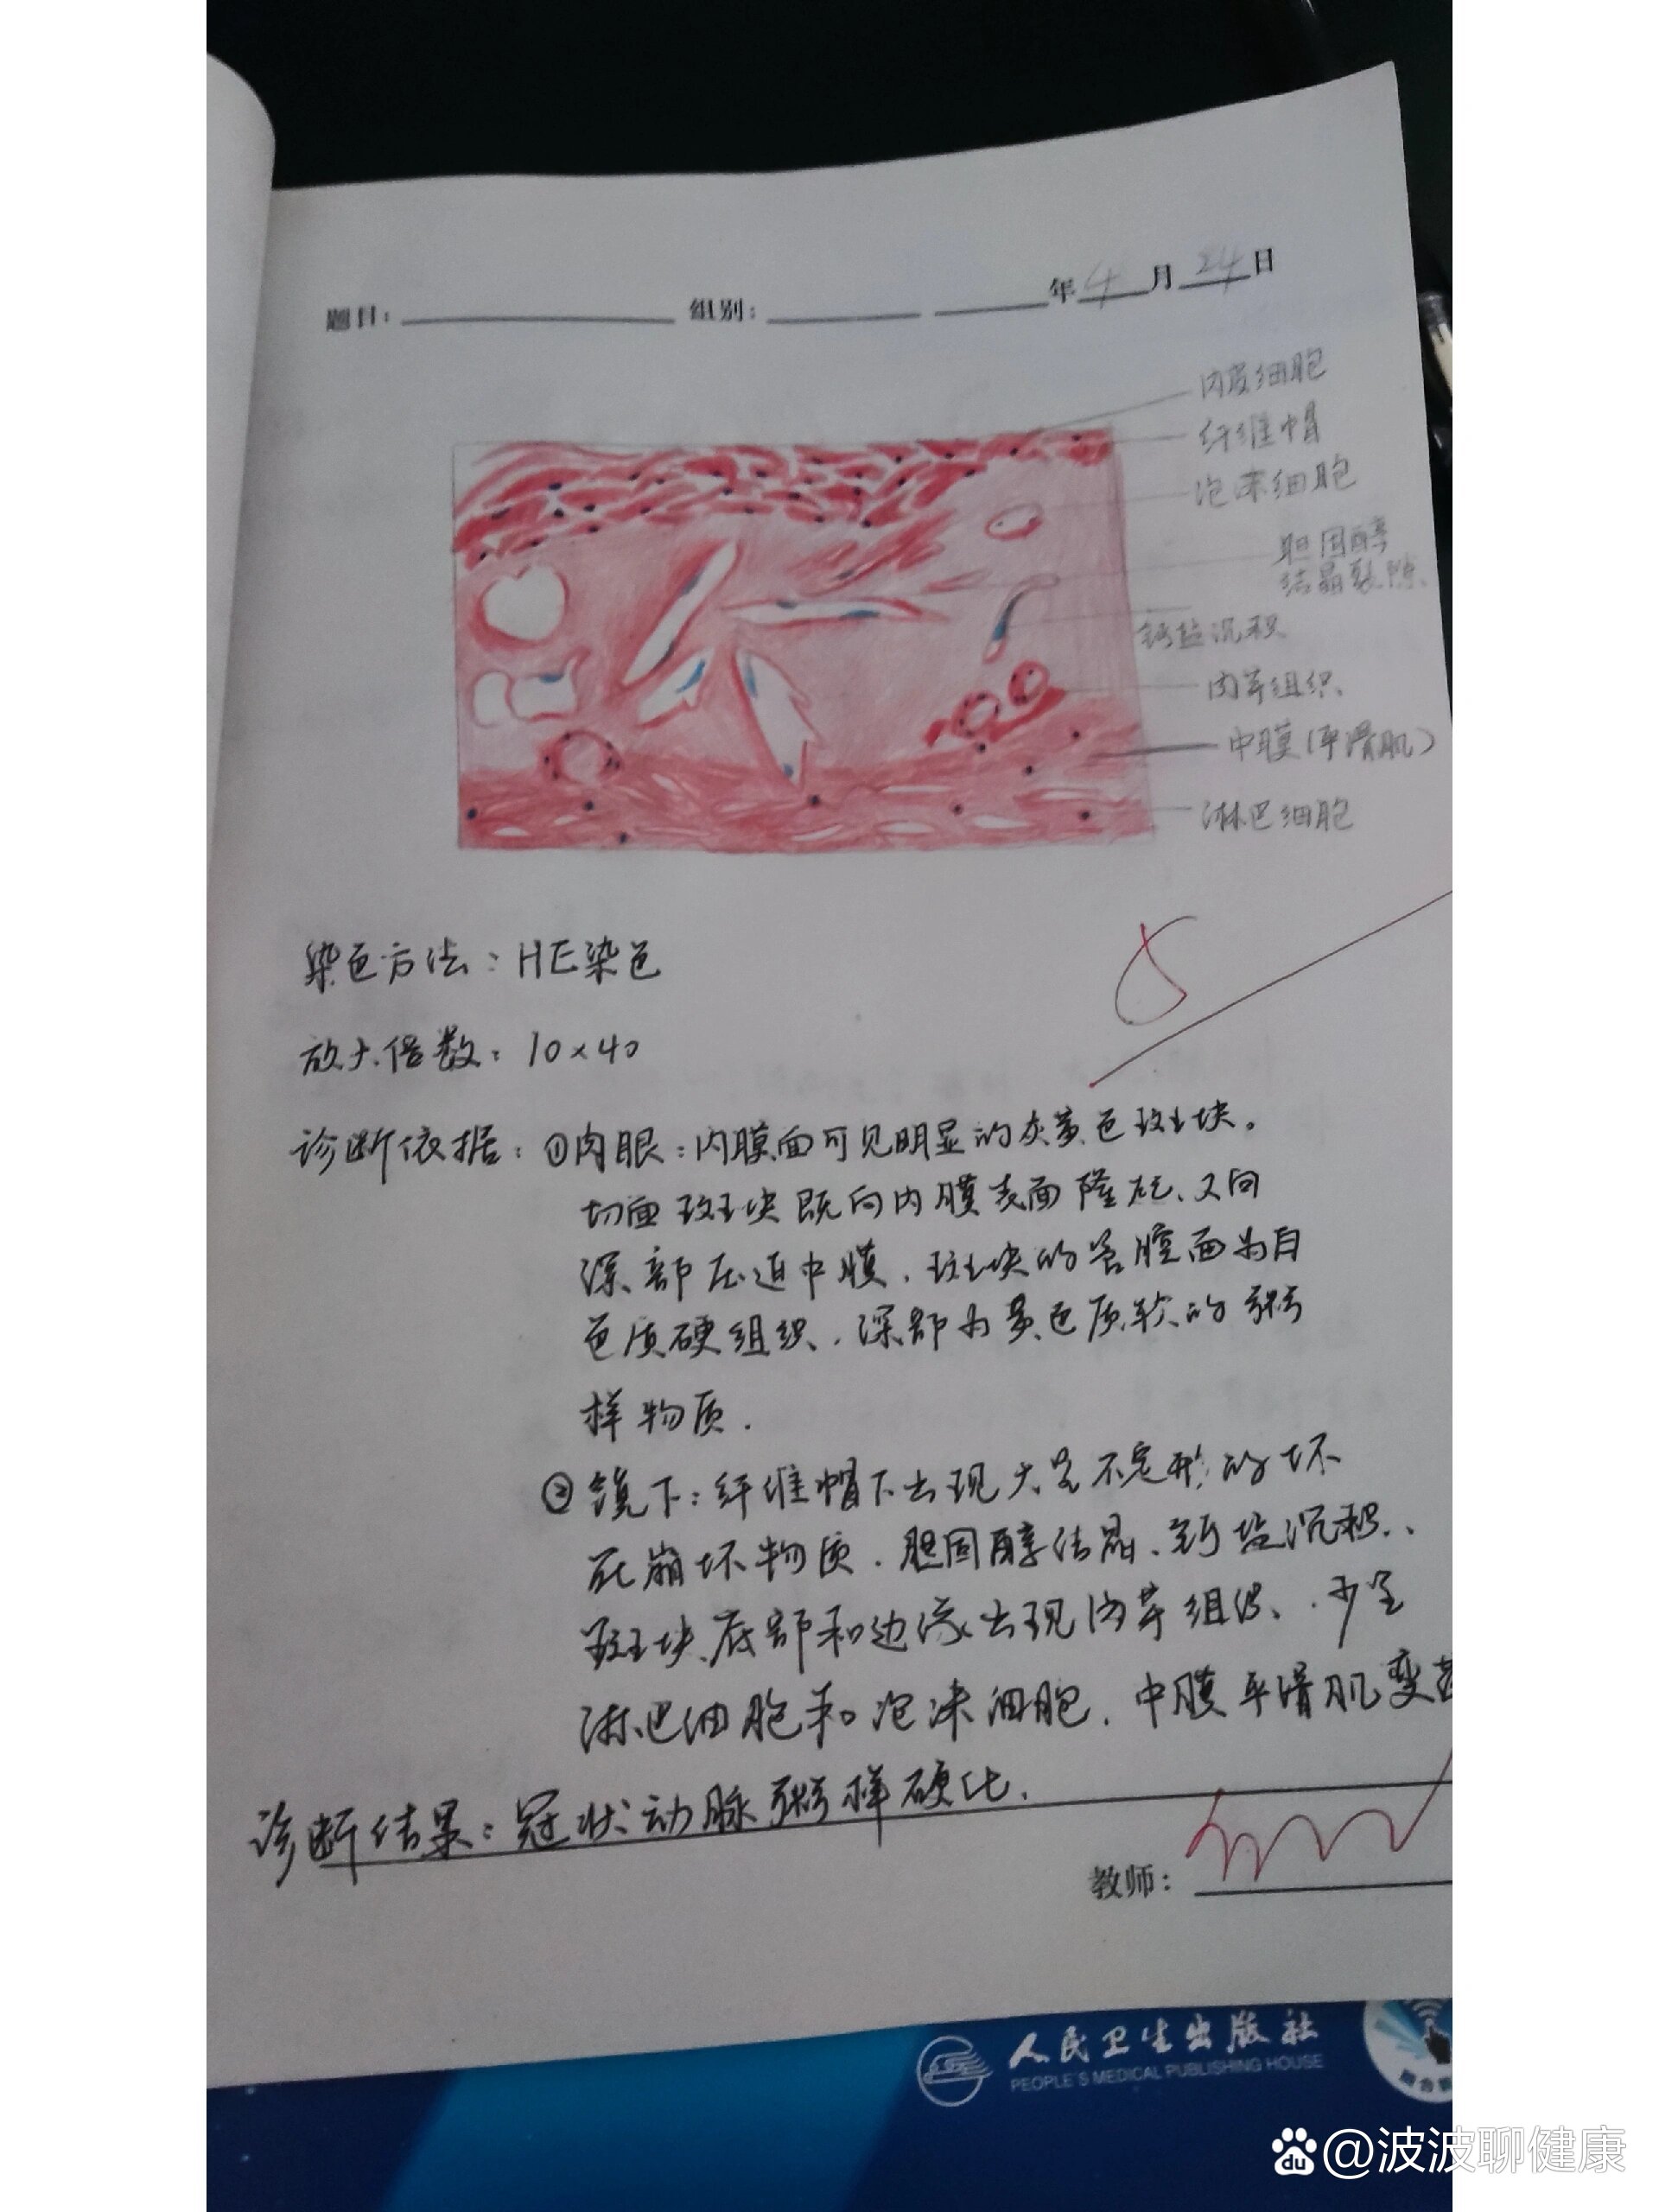 题目： 组别： 年4月24日
内皮细胞
纤维帽
泡沫细胞
胆固醇
结晶裂隙
钙盐沉积
肉芽组织
中膜(平滑肌)
淋巴细胞
染色方法：HE染色
放大倍数：10×40
诊断依据：①肉眼：内膜面可见明显的灰黄色斑块。
切面斑块既向内膜表面隆起、又向
深部压迫中膜，斑块的管腔面为白
色质硬组织，深部为黄色质软的粥
样物质.
②镜下：纤维帽下出现大量不定形的坏
死崩坏物质、胆固醇结晶、钙盐沉积、
斑块底部和边缘出现肉芽组织、少量
淋巴细胞和泡沫细胞，中膜平滑肌变
诊断结果：冠状动脉粥样硬化.
教师：
人民卫生出版社
PEOPLE'S MEDICAL PUBLISHING HOUSE
du @波波聊健康